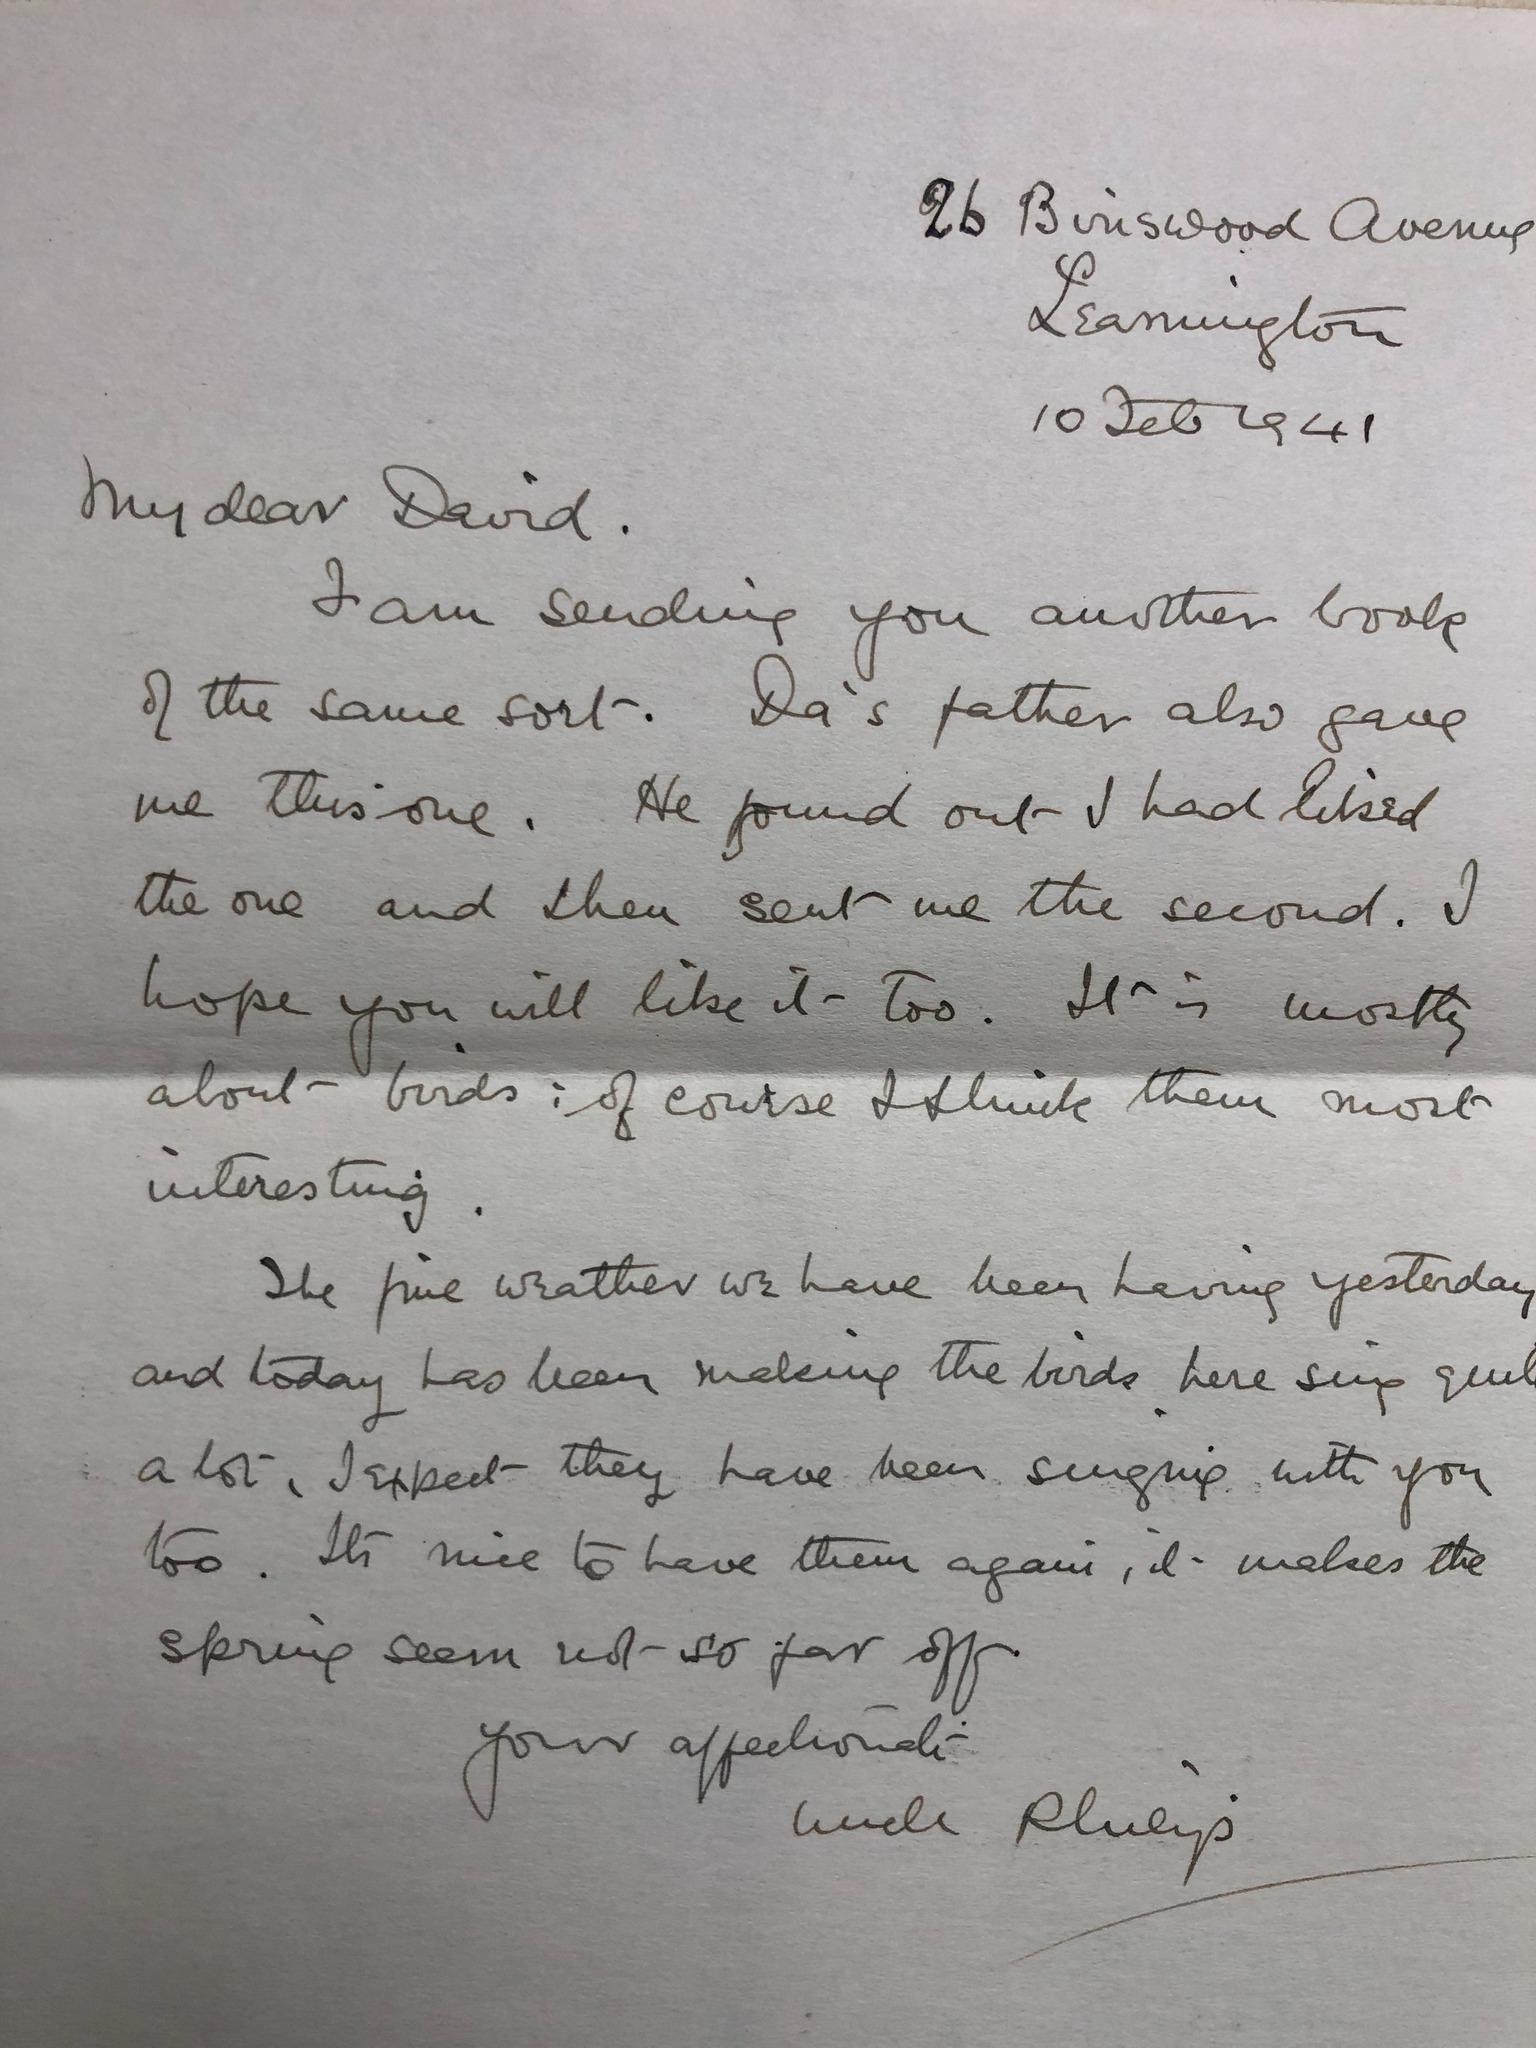 26 Binswood Avenue
Leamington
10 Feb 1941
My dear David.
I am sending you another book
of the same sort. Da's father also gave
me this one. He found out I had liked
the one and then sent me the second. I
hope you will like it too. It is mostly
about birds; of course I think them most
interesting.
The fine weather we have been having yesterday
and today has been making the birds here sing quit
a lot, I expect they have been singing with you
too. Its nice to have them again, it makes the
spring seem not so far off.
your affectionate
Uncle Philip